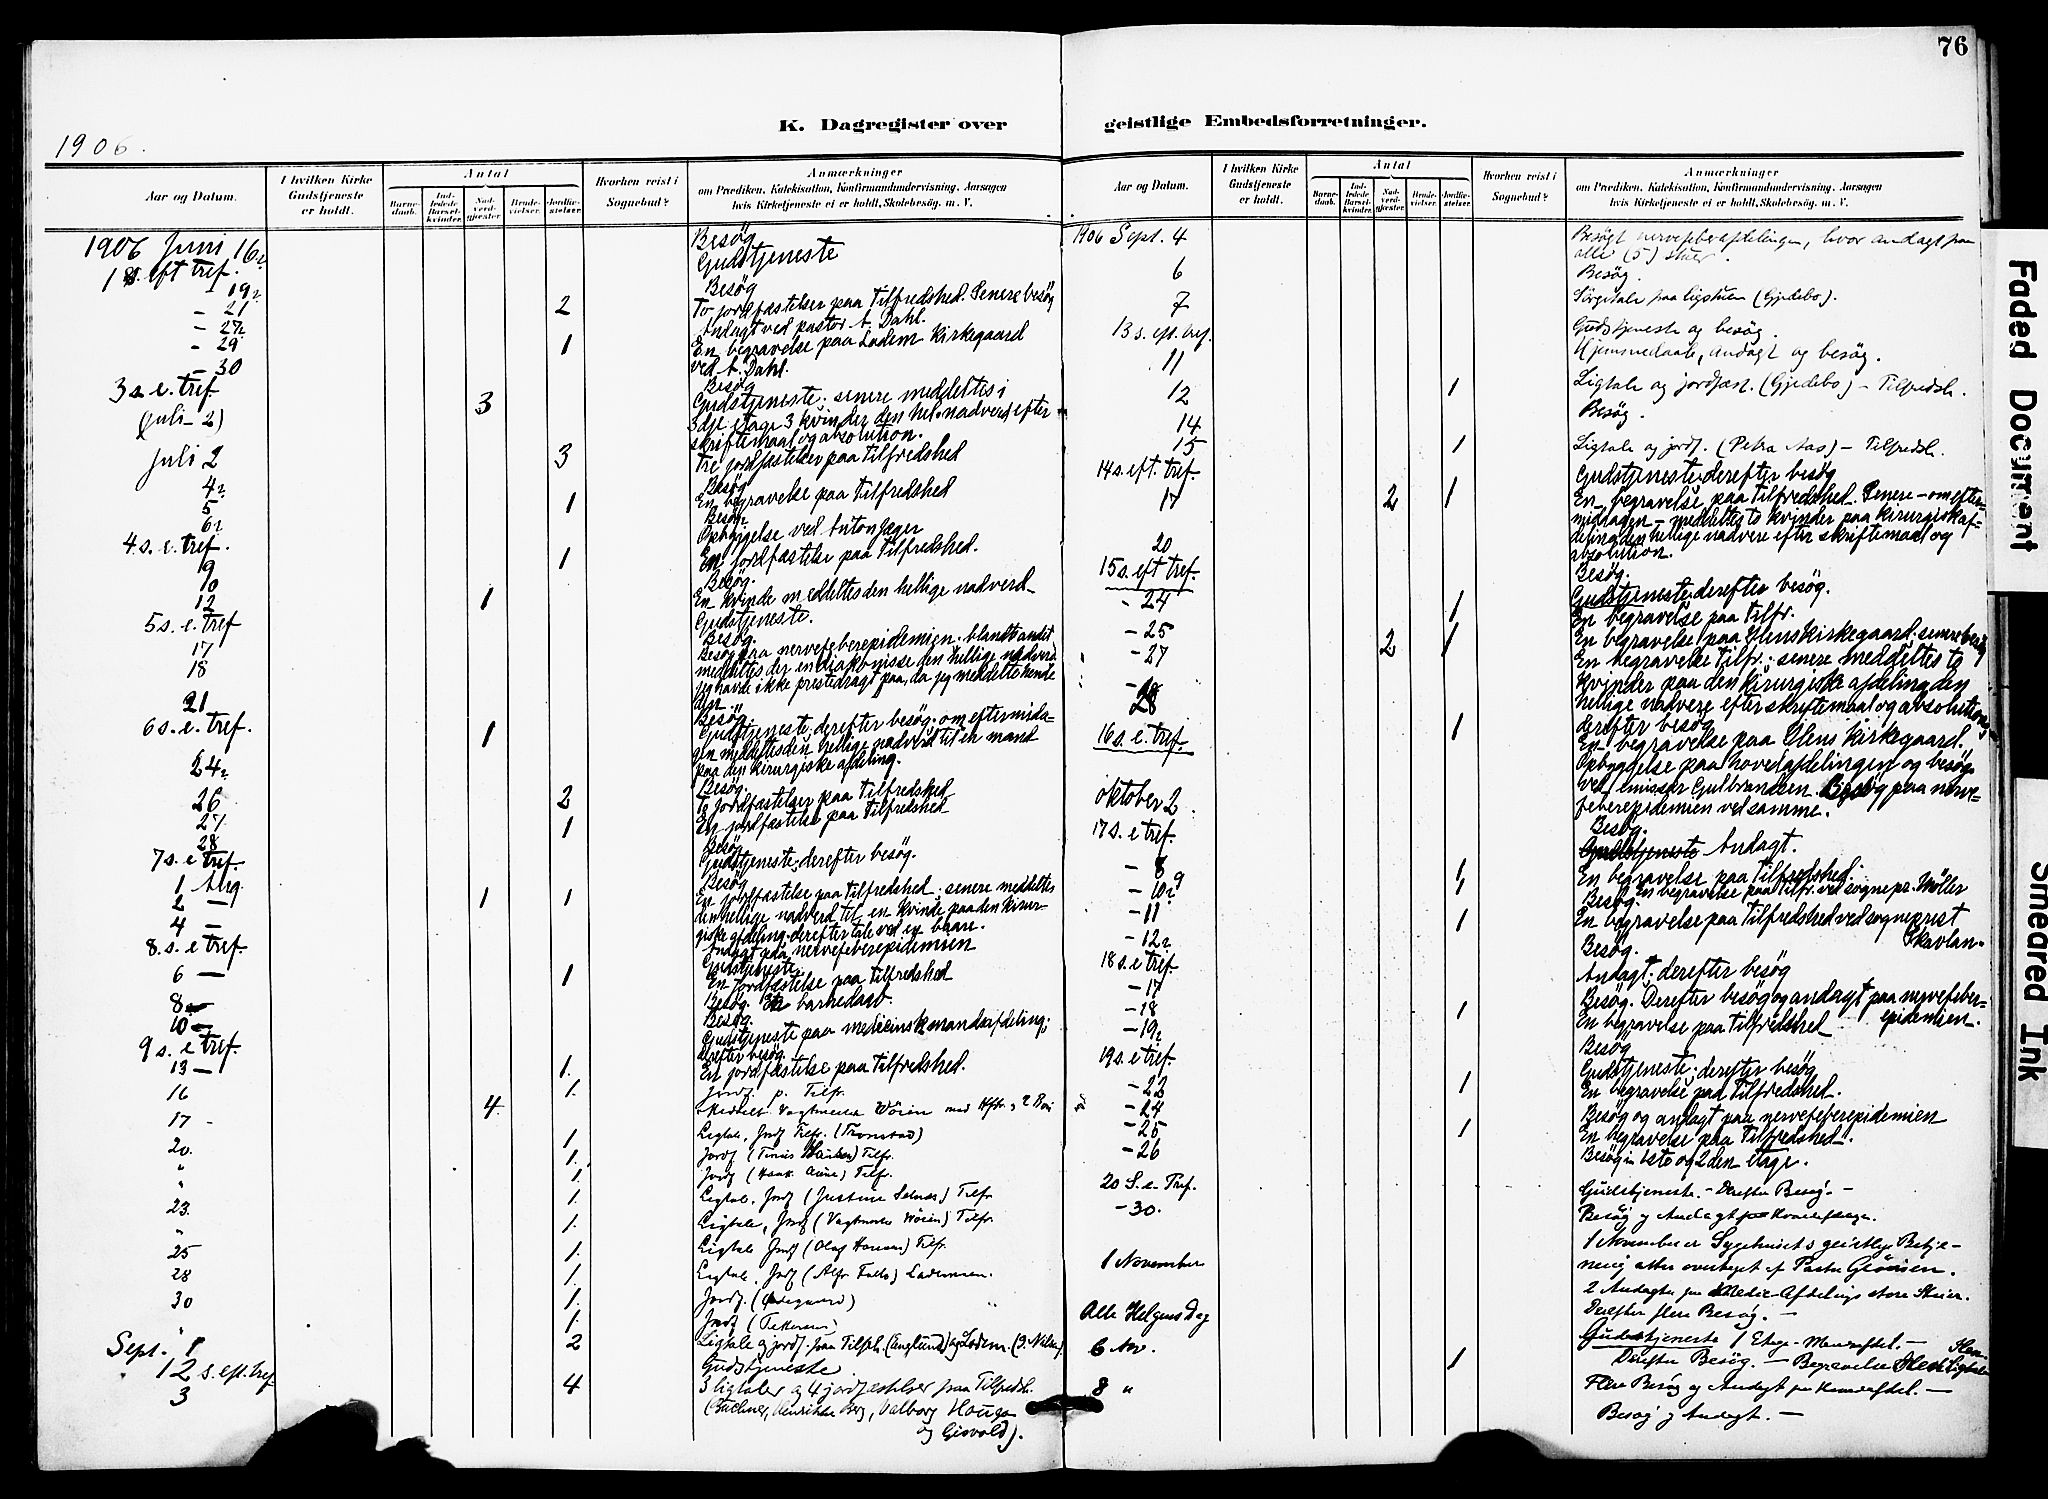 76
K. Dagregister over geistlige Embedsforretninger.
1906.
Aar og Datum.
I hvilken Kirke Gudstjeneste er holdt.
Antal
Barnedaab.
Indledede Barselkvinder.
Nadverdgjester
Brudevielser.
Jordfæstelser.
Hvorhen reist i Sognebud?
Anmærkninger
om Prædiken, Katekisation, Konfirmandundervisning, Aarsagen
hvis Kirketjeneste ei er holdt, Skolebesøg. m. V.
1906 Juni 16 Besøg
1 s. eft tref. Gudstjeneste
- 19 Besøg
- 21 2 To jordfæstelser paa Tilfredshed. Senere besøg
- 27 Andagt ved pastor A. Dahl.
- 29 1 En begravelse paa Ladem. Kirkegaard
ved A. Dahl.
- 30 Besøg
3 s. e. tref. Gudstjeneste; senere meddeltes i
(juli 2) 3 3dje etage 3 kvinder den hel. nadverd efter
skriftemaal og absolution.
Juli 2 3 Tre jordfæstelser paa Tilfredshed
4 Besøg
5 1 En begravelse paa Tilfredshed
6 Besøg
4 s. e. tref. Opbyggelse ved Anton Jæger
9 1 En jordfæstelse paa Tilfredshed.
10 Besøg.
12 1 En kvinde meddeltes den hellige nadverd
5 s. e. tref Gudstjeneste.
17 Besøg.
18 Besøg paa nervefeberepidemien. blandt andet
meddeltes der en diakonisse den hellige nadverd
jeg havde ikke prestedragt paa, da jeg meddelte hende
den.
21 Besøg
6 s. e. tref. 1 Gudstjeneste; derefter besøg; om eftermidda-
gen meddeltes den hellige nadverd til en mand
paa den kirurgiske afdeling.
24 Besøg.
26 2 To jordfæstelser paa Tilfredshed
27 1 En jordfæstelse paa Tilfredshed
28 Besøg
7 s. e tref. Gudstjeneste; derefter besøg.
1 Aug. Besøg
2 — 1 1 En jordfæstelse paa Tilfredshed; senere meddeltes
den hellige nadverd til en kvinde paa den kirur-
giske afdeling; derefter tale ved en baare.
4 — Andagt paa nervefeberepidemien
8. s. e tref. Gudstjeneste
6 — 1 En jordfæstelse paa Tilfredshed
8 — Besøg. En barnedaab.
10 — Besøg.
9 s. e tref. Gudstjeneste paa medicinsk mandsafdeling;
derefter besøg.
13 — 1. En jordfæstelse paa Tilfredshed.
16 1. Jordf. p. Tilfr.
17 4. Vagtmester Wöien med
20. 1. Ligtale, Jordf Tilfr. (Tronstad)
" 1. Jordf Tilfr.
" 1. Jordf Tilfr.
23. 1. Ligtale, Jordf (Justine Selnes) Tilfr
" 1. Ligtale, Jordf (Vagtmester Wöien) Tilfr.
25 1. Ligtale Jordf (Olaf Hansen) Tilfr.
28 1. Ligtale. Jordf Lademoen.
30 1. Jordf.
1. Jordf (Pettersen)
Sept. 1 2 Ligtale og jordf. paa Tilfr. (Englund) og Ladem.
12 s. eft. tref Gudstjeneste
3 4 3 ligtaler og 4 jordfæstelser paa Tilfredsh.
(Buchner, Henrikke Berg, Valborg Hougan
og Gisvold).
1906 Sept. 4 Besøgt nervefeberafdelingen, hvor andagt paa
alle (5) stuer.
6 Besøg.
7 Sørgetale paa ligstuen (Gjedebo).
13 s. eft. tref. Gudstjeneste og besøg.
11 Hjemmedaab, andagt og besøg.
12 1 Ligtale og jordfæst. (Gjedebo) – Tilfredsh.
14 Besøg.
15 1 Ligtale og jordf. (Petra Aas) – Tilfredsh.
14 s. eft. tref. Gudstjeneste; derefter besøg
17 2 1 En begravelse paa Tilfredshed. Senere – om efter-
middagen – meddeltes to kvinder paa kirurgisk af-
deling den hellige nadvere efter skriftemaal og
absolution.
20 Besøg.
15 s. eft tref. Gudstjeneste; derefter besøg.
- 24 1 En begravelse paa Tilfr.
- 25 1 En begravelse paa Ilens kirkegaard; senere besøg
- 27 2 1 En begravelse Tilfr.; senere meddeltes to
kvinder paa den kirurgiske afdeling den
hellige nadvere efter skriftemaal og absolution;
derefter besøg
28 1 En begravelse paa Ilens kirkegaard.
16 s. e. tref. Opbyggelse paa hovedafdelingen og besøg
ved emissær Gulbrandsen. Besøg paa nerve-
feberepidemien ved samme.
oktober 2. Besøg.
17 s. e tref. Gudstjeneste Andagt.
- 8 1 En begravelse paa Tilfredshed.
9 1 En begravelse paa Tilfr. ved sognepr. Møller
- 10 Besøg.
- 11 1 En begravelse paa Tilfredshed ved sogneprest
Skavlan.
- 12 Besøg.
18 s. e tref. Andagt; derefter besøg
- 17 Besøg. Derefter besøg og andagt paa nervefeber-
epidemien.
- 18 1 En begravelse paa Tilfredshed
- 19 Besøg
19 s. e tref. Gudstjeneste; derefter besøg
- 23 1 En begravelse paa Tilfredshed.
- 24 Besøg og andagt paa nervefeberepidemien
- 25 1 En begravelse paa Tilfredshed.
- 26 Besøg i 1ste og 2den etage.
20 S. e. Tref. Gudstjeneste. – Derefter Besøg. –
- 30. Besøg og Andagt
1 November 1 November er Sygehusets geistlige Betje-
ning atter overtaget af Pastor
2 Andagter paa Medic. Afdelings store Stuer.
Derefter flere Besøg. –
Alle Helgens Dag Gudstjeneste 1 Etage –
6 Nov. 1 Derefter Besøg. – Begravelse
8 " Flere Besøg og Andagt
Besøg og Andagt. –
Faded Document
Smeared Ink